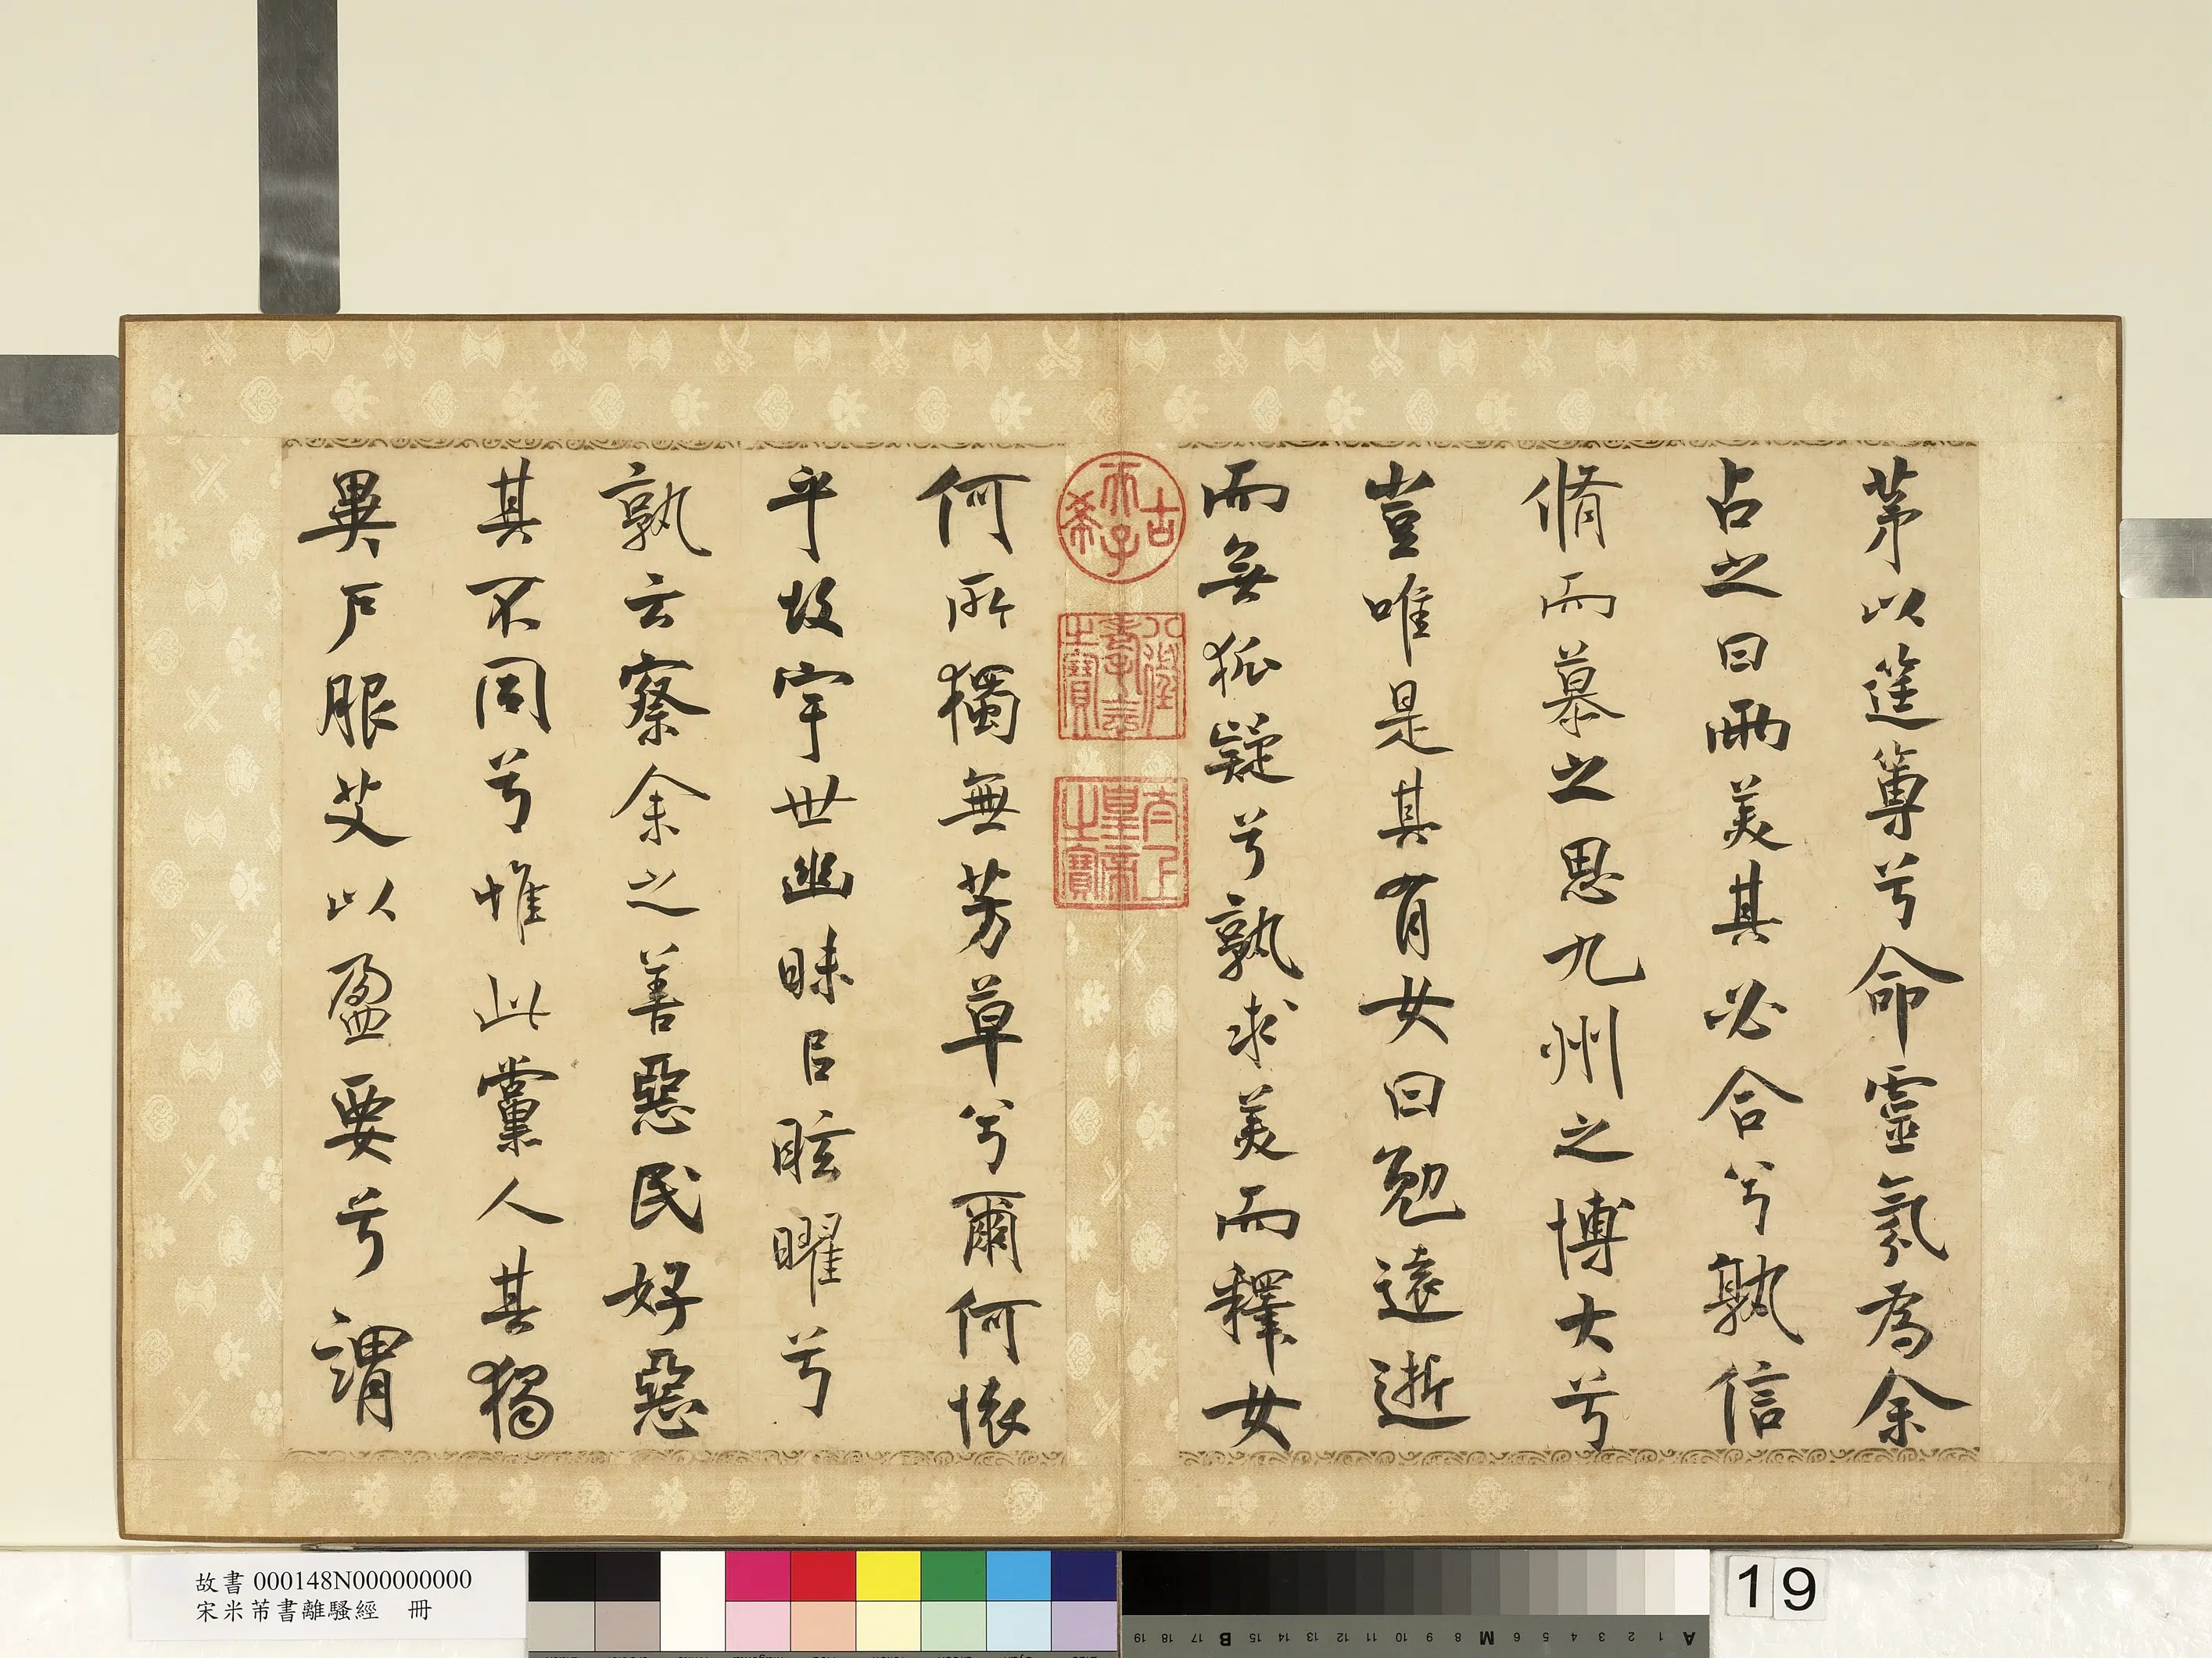 茅以筳篿兮命靈氛為余
占之曰兩美其必合兮孰信
脩而慕之思九州之博大兮
豈唯是其有女曰勉遠逝
而無狐疑兮孰求美而釋女
何所獨無芳草兮爾何懷
乎故宇世幽昧㠯眩曜兮
孰云察余之善惡民好惡
其不同兮惟此黨人其獨
異戶服艾以盈要兮謂
古希天子
八徵耄念之寶
太上皇帝之寶
故書 000148N000000000
宋米芾書離騷經 冊
19
A 1 2 3 4 5 6 M 8 9 10 11 12 13 14 15 B 17 18 19